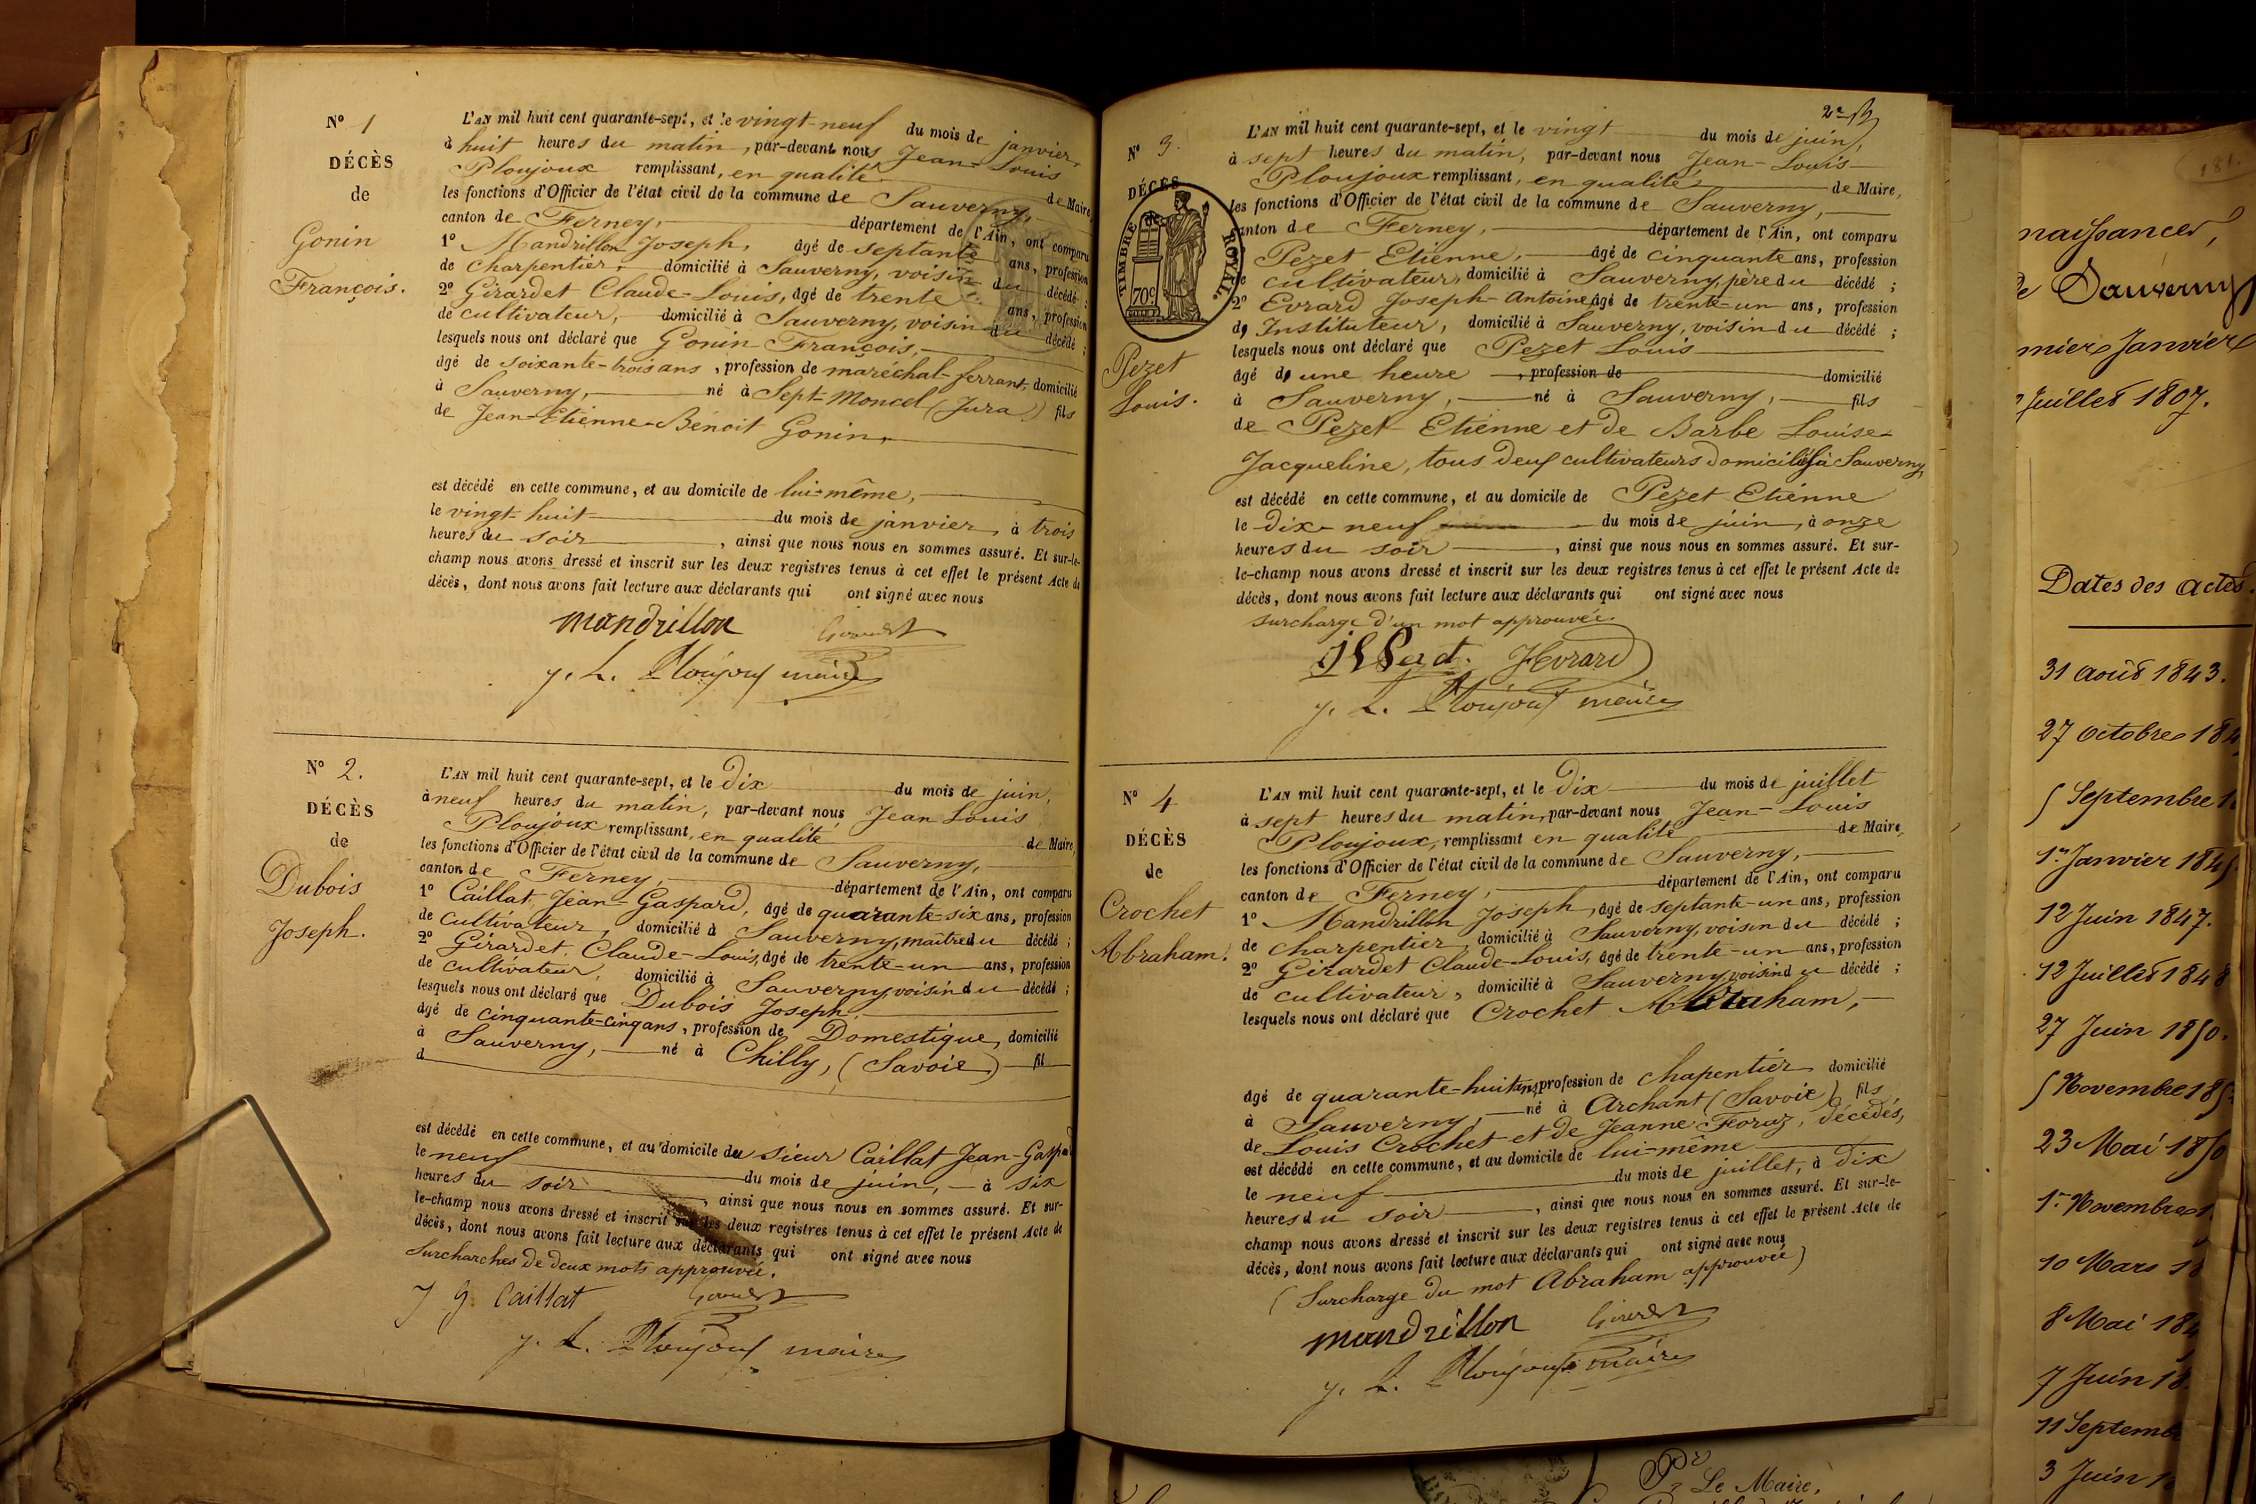 N° 1
DÉCÈS
de
Gonin
François.
L'AN mil huit cent quarante-sept, et le vingt-neuf du mois de janvier,
à huit heures du matin, par-devant nous Jean-Louis
Ploujoux remplissant, en qualité de Maire,
les fonctions d'Officier de l'état civil de la commune de Sauverny,
canton de Ferney, département de l'Ain, ont comparu
1° Mandrillon Joseph, âgé de septante ans, profession
de charpentier, domicilié à Sauverny, voisin du décédé ;
2° Girardet Claude-Louis, âgé de trente ans, profession
de cultivateur, domicilié à Sauverny, voisin du décédé ;
lesquels nous ont déclaré que Gonin François,
âgé de soixante-trois ans, profession de maréchal-ferrant, domicilié
à Sauverny, né à Sept-Moncel (Jura) fils
de Jean-Etienne-Bénoit Gonin,
est décédé en cette commune, et au domicile de lui-même,
le vingt-huit du mois de janvier, à trois
heures du soir, ainsi que nous nous en sommes assuré. Et sur-le-
champ nous avons dressé et inscrit sur les deux registres tenus à cet effet le présent Acte de
décès, dont nous avons fait lecture aux déclarants qui ont signé avec nous
mandrillon Girardet
J. L. Ploujoux maire
N° 2.
DÉCÈS
de
Dubois
Joseph.
L'AN mil huit cent quarante-sept, et le dix du mois de juin,
à neuf heures du matin, par-devant nous Jean Louis
Ploujoux remplissant, en qualité de Maire,
les fonctions d'Officier de l'état civil de la commune de Sauverny,
canton de Ferney, département de l'Ain, ont comparu
1° Caillat Jean-Gaspard, âgé de quarante-six ans, profession
de cultivateur, domicilié à Sauverny, maître du décédé ;
2° Girardet Claude-Louis, âgé de trente-un ans, profession
de cultivateur, domicilié à Sauverny, voisin du décédé ;
lesquels nous ont déclaré que Dubois Joseph,
âgé de cinquante-cinq ans, profession de Domestique, domicilié
à Sauverny, né à Chilly, (Savoie) fil
d
est décédé en cette commune, et au domicile du sieur Caillat Jean-Gaspard
le neuf du mois de juin, à six
heures du soir, ainsi que nous nous en sommes assuré. Et sur-
le-champ nous avons dressé et inscrit sur les deux registres tenus à cet effet le présent Acte de
décès, dont nous avons fait lecture aux déclarants qui ont signé avec nous
Surcharches de deux mots approuvée.
J g Caillat Girardet
J. L. Ploujoux maire
2e
N° 3.
DÉCÈS
TIMBRE ROYAL.
70c
Pezet
Louis.
L'AN mil huit cent quarante-sept, et le vingt du mois de juin,
à sept heures du matin, par-devant nous Jean-Louis
Ploujoux remplissant, en qualité de Maire,
les fonctions d'Officier de l'état civil de la commune de Sauverny,
canton de Ferney, département de l'Ain, ont comparu
Pezet Etienne, âgé de cinquante ans, profession
de cultivateur, domicilié à Sauverny, père du décédé ;
2° Evrard Joseph-Antoine, âgé de trente-un ans, profession
d, Instituteur, domicilié à Sauverny, voisin du décédé ;
lesquels nous ont déclaré que Pezet Louis
âgé d, une heure, profession de domicilié
à Sauverny, né à Sauverny, fils
de Pezet Etienne et de Barbe Louise-
Jacqueline, tous deux cultivateurs domiciliés à Sauverny,
est décédé en cette commune, et au domicile de Pezet Etienne
le dix-neuf du mois de juin, à onze
heures du soir, ainsi que nous nous en sommes assuré. Et sur-
le-champ nous avons dressé et inscrit sur les deux registres tenus à cet effet le présent Acte de
décès, dont nous avons fait lecture aux déclarants qui ont signé avec nous
surcharge d'un mot approuvée.
JEvrard
J. L. Ploujoux maire
N° 4
DÉCÈS
de
Crochet
Abraham.
L'AN mil huit cent quarante-sept, et le dix du mois de juillet
à sept heures du matin, par-devant nous Jean-Louis
Ploujoux, remplissant en qualité de Maire,
les fonctions d'Officier de l'état civil de la commune de Sauverny,
canton de Ferney, département de l'Ain, ont comparu
1° Mandrillon Joseph, âgé de septante-un ans, profession
de charpentier, domicilié à Sauverny, voisin du décédé ;
2° Girardet Claude-Louis, âgé de trente-un ans, profession
de cultivateur, domicilié à Sauverny, voisin du décédé ;
lesquels nous ont déclaré que Crochet Abraham,
âgé de quarante-huit ans, profession de chapentier domicilié
à Sauverny, né à Archant (Savoie) fils
de Louis Crochet et de Jeanne Foraz, décédés,
est décédé en cette commune, et au domicile de lui-même
le neuf du mois de juillet, à dix
heures du soir, ainsi que nous nous en sommes assuré. Et sur-le-
champ nous avons dressé et inscrit sur les deux registres tenus à cet effet le présent Acte de
décès, dont nous avons fait lecture aux déclarants qui ont signé avec nous
(Surcharge du mot Abraham approuvée)
mandrillon Girardet
J. L. Ploujoux maire
181.
naissances,
de Sauverny
mier Janvier
Juillet 1807.
Dates des actes.
31 août 1843.
27 octobre 184
5 Septembre 1
1er Janvier 184
12 Juin 1847.
12 Juillet 1848
27 Juin 1850.
5 Novembre 185
23 Mai 1850
1er Novembre 1
10 Mars 18
8 Mai 18
7 Juin 18
11 Septemb
3 Juin 1
Pr Le Maire,